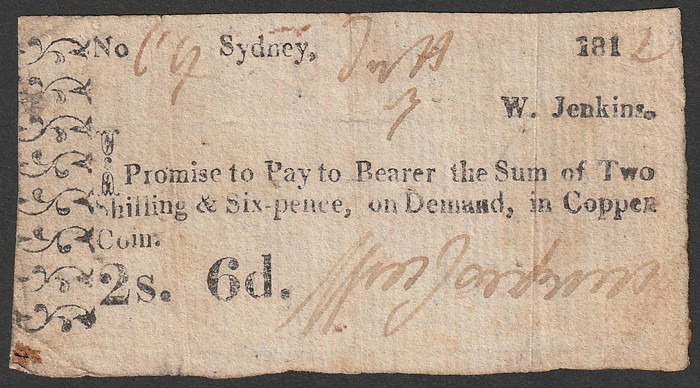 No Sydney, 1812
W. Jenkins.
I Promise to Pay to Bearer the Sum of Two
Shilling & Six-pence, on Demand, in Copper
Coin.
2s. 6d.